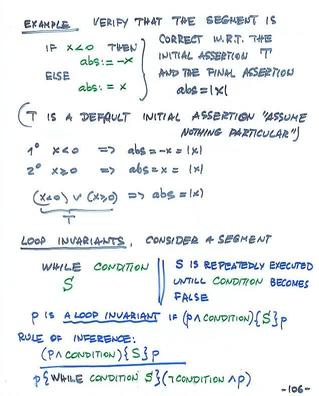 EXAMPLE VERIFY THAT THE SEGMENT IS
CORRECT W.R.T. THE
IF x<0 THEN
INITIAL ASSERTION T
abs:= -x
AND THE FINAL ASSERTION
ELSE
abs=|x|
abs:= x
(T IS A DEFAULT INITIAL ASSERTION "ASSUME
NOTHING PARTICULAR")
1° x<0 => abs=-x=|x|
2° x≥0 => abs=x=|x|
(x<0) ∨ (x≥0) => abs=|x|
T
LOOP INVARIANTS, CONSIDER A SEGMENT
WHILE CONDITION || S IS REPEATEDLY EXECUTED
S UNTILL CONDITION BECOMES
FALSE
p IS A LOOP INVARIANT IF (p∧CONDITION){S}p
RULE OF INFERENCE:
(p∧CONDITION){S}p
p{WHILE CONDITION S}(¬CONDITION∧p)
-106-